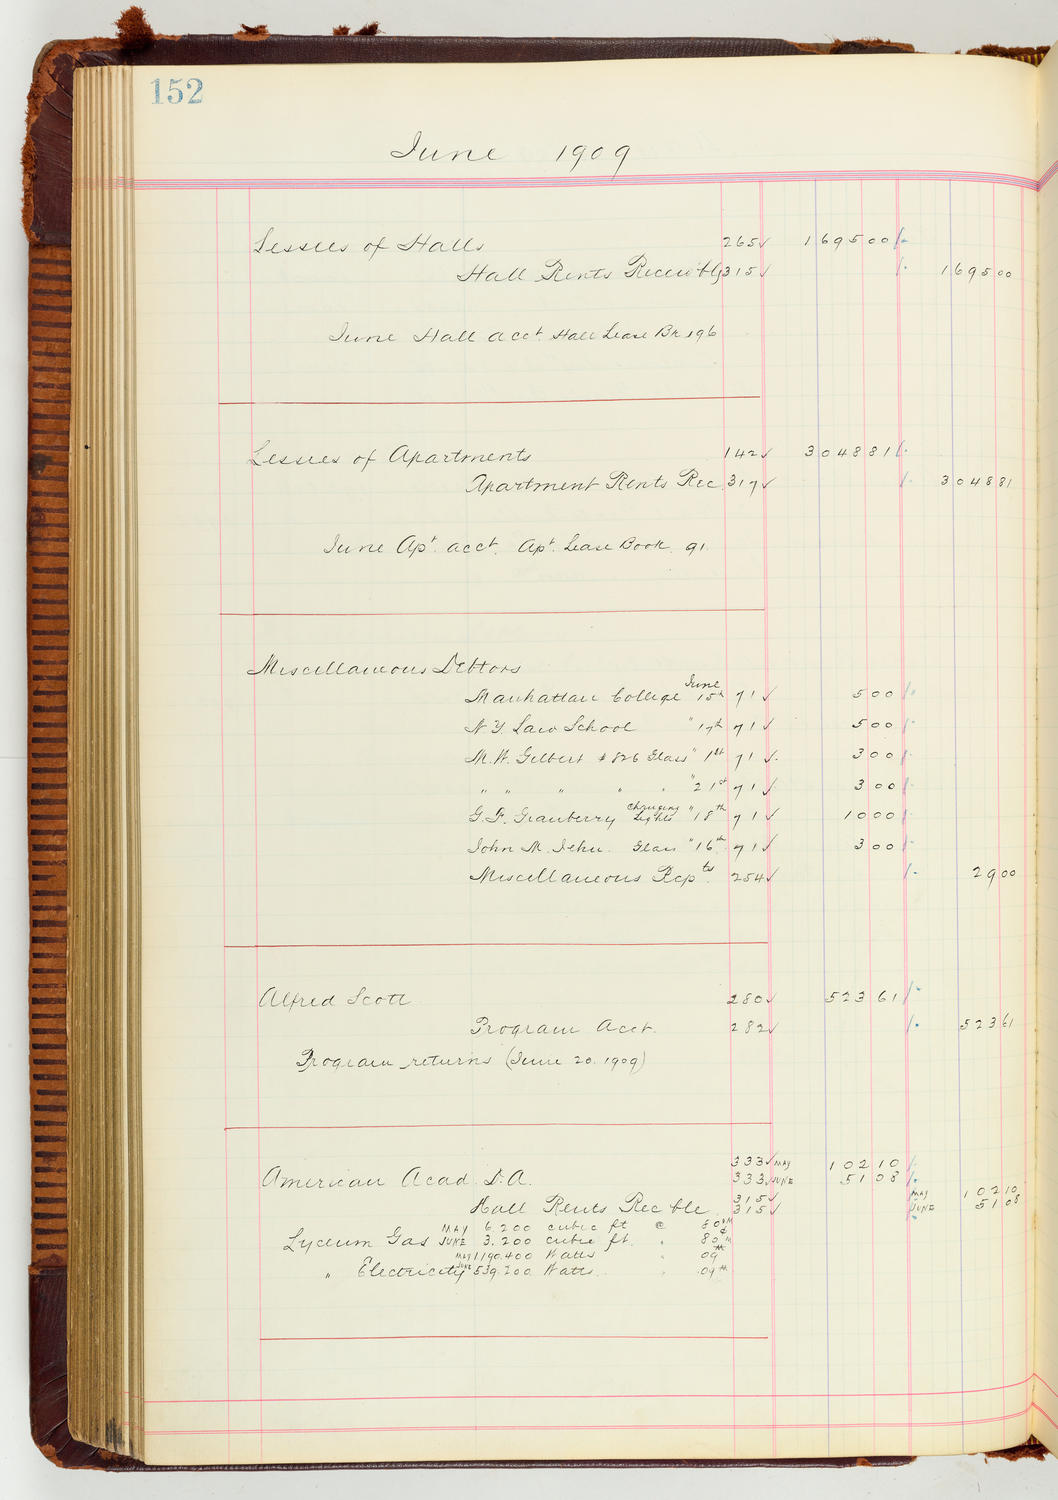 152
June 1909
Lessees of Halls 265 ✓ 1695 00
Hall Rents Receivbl 315 ✓ 1695 00
June Hall acct. Hall Lease Bk 196
Lessees of Apartments 142 ✓ 3048 81
Apartment Rents Rec. 317 ✓ 3048 81
June Apt. acct. Apt. Lease Book 91.
Miscellaneous Debtors
Manhattan College June 15th 71 ✓ 5 00
N.Y. Law School " 17th 71 ✓ 5 00
M.W. Gilbert #826 Glass " 1st 71 ✓ 3 00
" " " " " " 21st 71 ✓ 3 00
G.F. Granberry Changing Lights " 18th 71 ✓ 10 00
John M. Glass " 16th 71 ✓ 3 00
Miscellaneous Rcpts. 254 ✓ 29 00
Alfred Scott 280 ✓ 523 61
Program Acct. 282 ✓ 523 61
Program returns (June 20. 1909)
American Acad. D.A. 333 ✓ MAY 102 10
333 ✓ JUNE 51 08
Hall Rents Rec'ble 315 ✓ MAY 102 10
315 ✓ JUNE 51 08
Lyceum Gas MAY 6.200 cubic ft @ 80
JUNE 3.200 cubic ft. " 80
MAY 1190.400 Watts " 09
" Electricity JUNE 539.200 Watts " .09